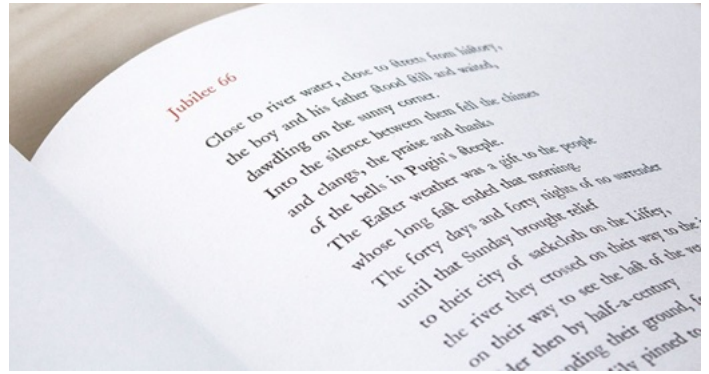 Jubilee 66
Close to river water, close to streets from history,
the boy and his father stood still and waited,
dawdling on the sunny corner.
Into the silence between them fell the chimes
and clangs, the praise and thanks
of the bells in Pugin's steeple.
The Easter weather was a gift to the people
whose long fast ended that morning.
The forty days and forty nights of no surrender
until that Sunday brought relief
to their city of sackcloth on the Liffey,
the river they crossed on their way to the
on their way to see the last of the
then by half-a-century
their ground,
pinned to